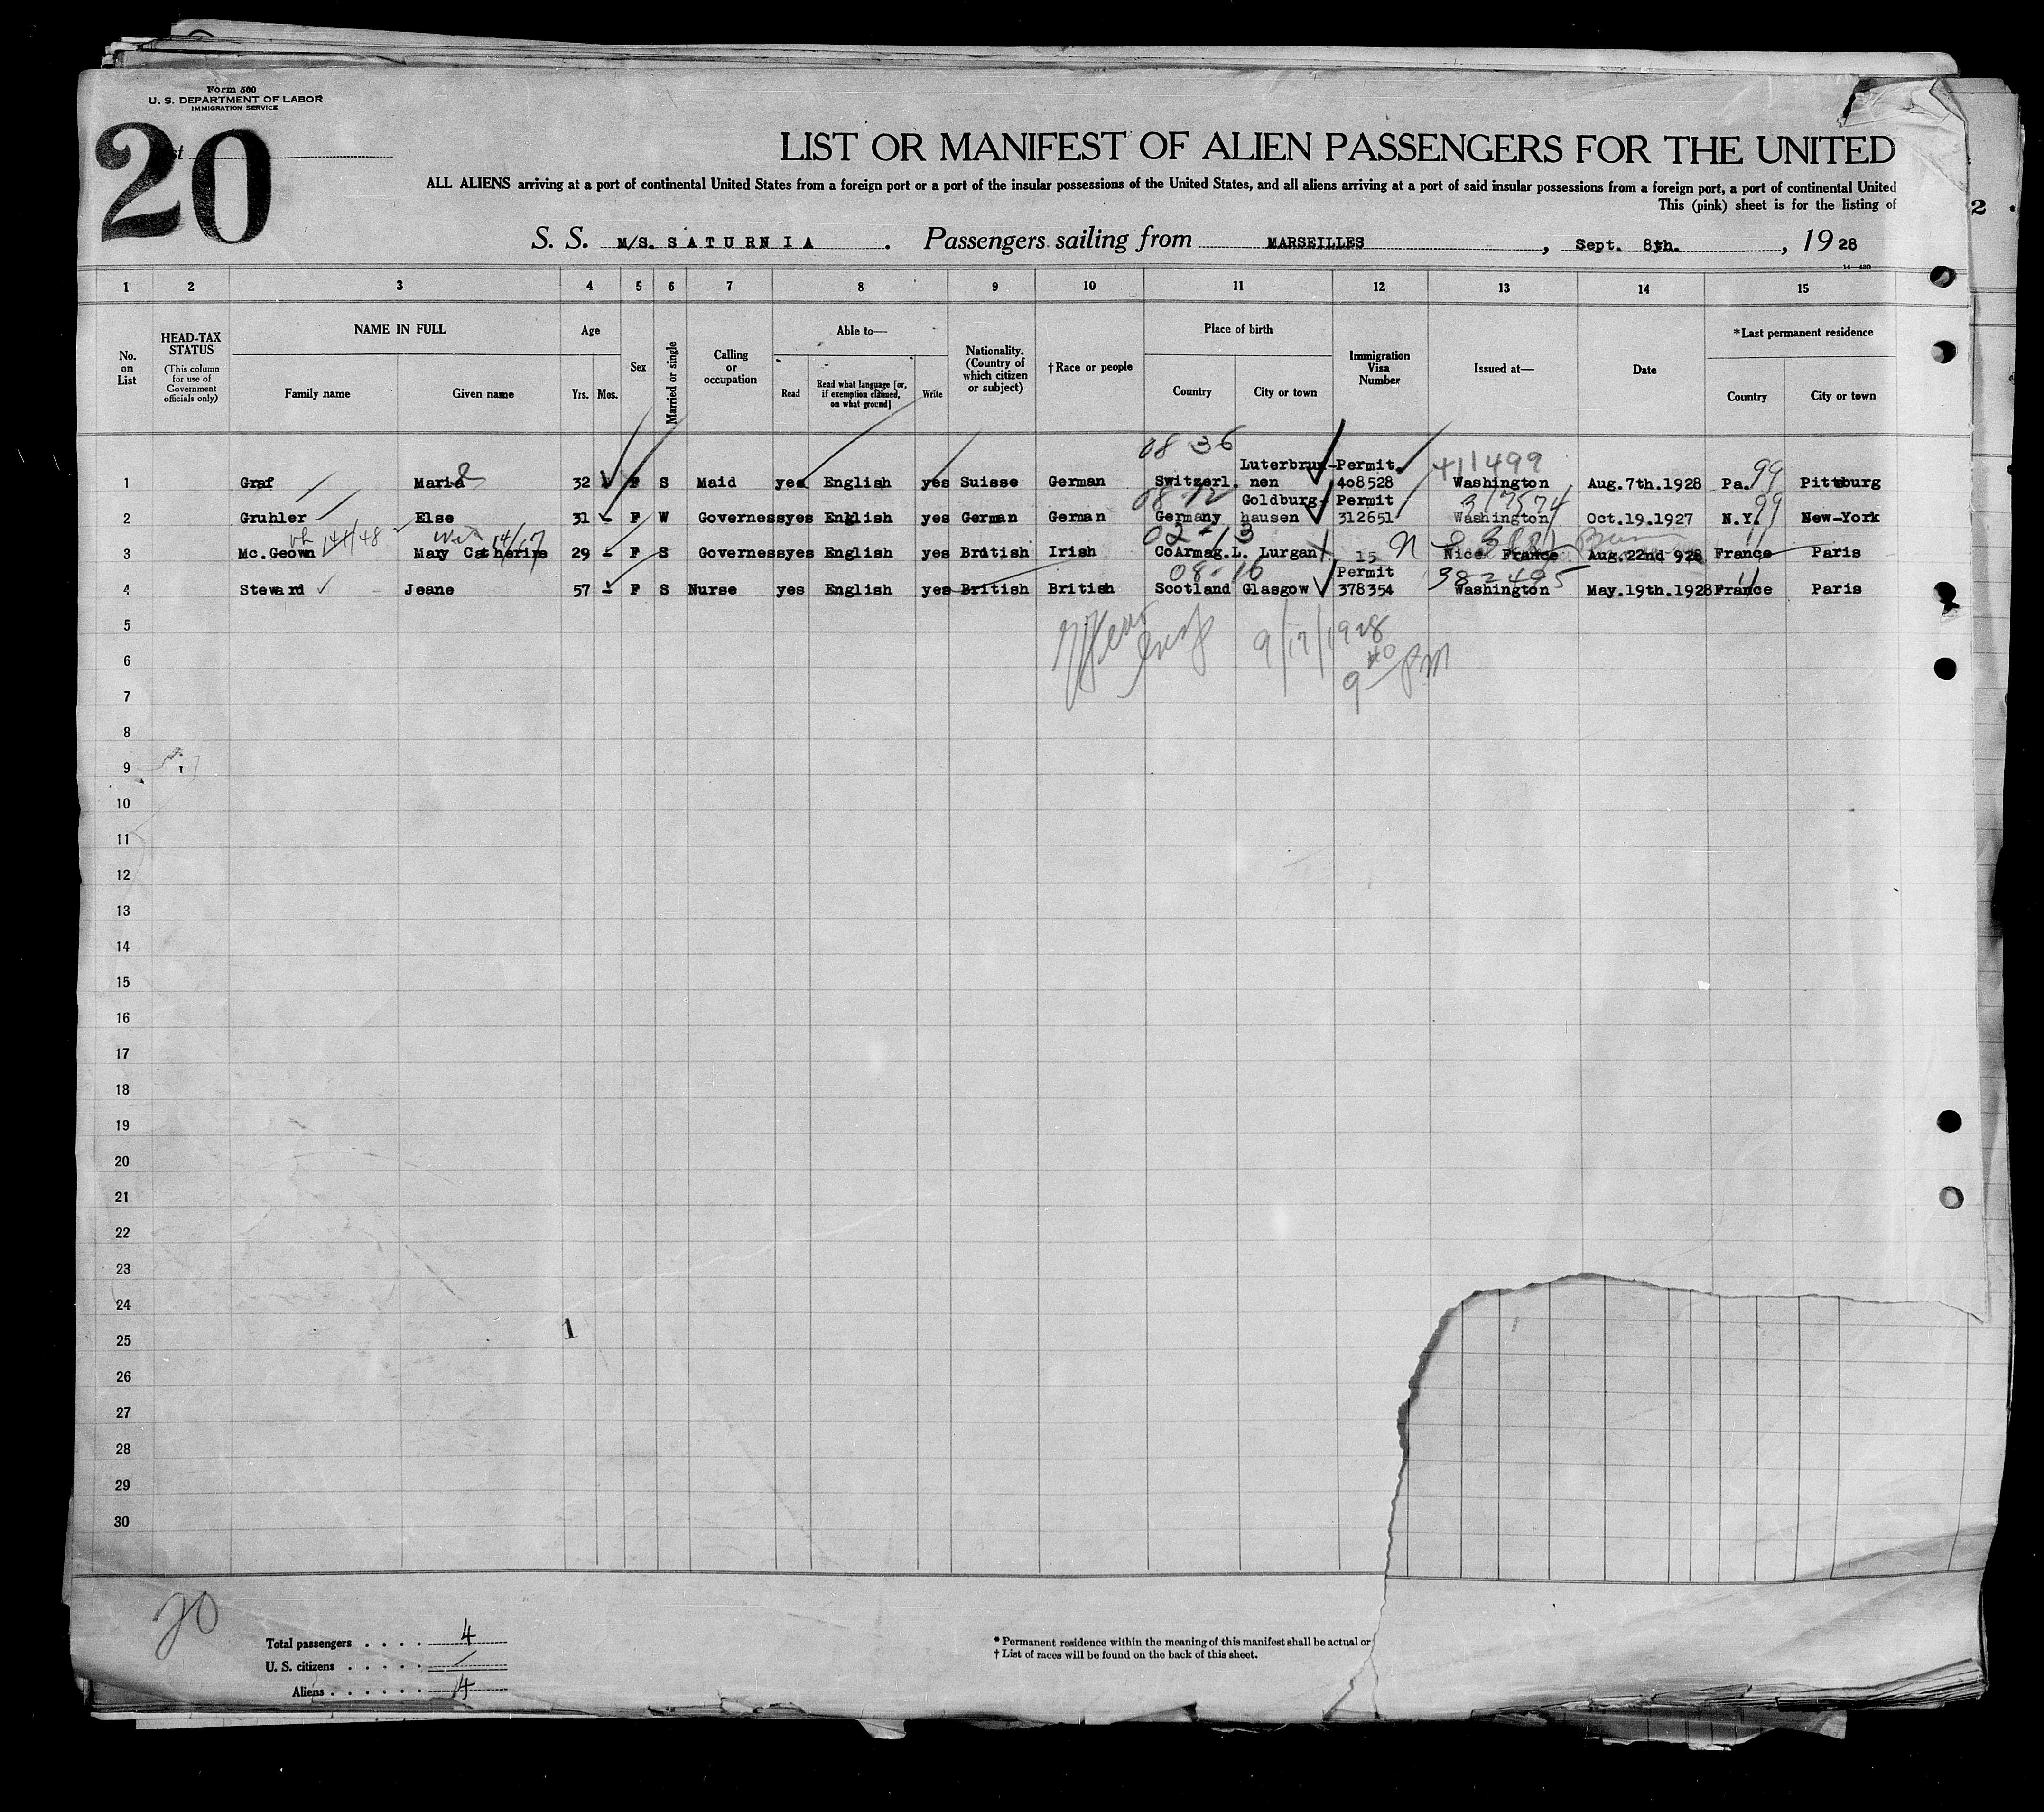 Form 500
U. S. DEPARTMENT OF LABOR
IMMIGRATION SERVICE
20
LIST OR MANIFEST OF ALIEN PASSENGERS FOR THE UNITED
ALL ALIENS arriving at a port of continental United States from a foreign port or a port of the insular possessions of the United States, and all aliens arriving at a port of said insular possessions from a foreign port, a port of continental United
This (pink) sheet is for the listing of
2
S. S. M/S. SATURNIA. Passengers sailing from MARSEILLES, Sept. 8th., 1928
14—430
1 2 3 4 5 6 7 8 9 10 11 12 13 14 15
No. on List
HEAD-TAX STATUS
(This column for use of Government officials only)
NAME IN FULL
Family name Given name
Age
Yrs. Mos.
Sex
Married or single
Calling or occupation
Able to—
Read Read what language [or, if exemption claimed, on what ground] Write
Nationality. (Country of which citizen or subject)
†Race or people
Place of birth
Country City or town
Immigration Visa Number
Issued at—
Date
*Last permanent residence
Country City or town
08 36
Luterbrun- Permit 411499 99
1 Graf Maria 32 F S Maid yes English yes Suisse German Switzerl. nen 408528 Washington Aug.7th.1928 Pa. Pittsburg
Goldburg- Permit 317574 99
2 Gruhler Else 31 - F W Governess yes English yes German German Germany hausen 312651 Washington Oct.19.1927 N.Y. New-York
02-13
3 Mc.Geown Mary Catherine 29 - F S Governess yes English yes British Irish CoArmag.I. Lurgan 15 Nice France Aug.22nd 928 France Paris
08-16 Permit 382495
4 Steward Jeane 57 - F S Nurse yes English yes British British Scotland Glasgow 378354 Washington May.19th.1928 France Paris
5
9/17/1928
6
9 40 PM
7
8
9
10
11
12
13
14
15
16
17
18
19
20
21
22
23
24
1
25
26
27
28
29
30
20
Total passengers . . . . 4
U. S. citizens . . . . .
Aliens . . . . . . 4
* Permanent residence within the meaning of this manifest shall be actual or
† List of races will be found on the back of this sheet.